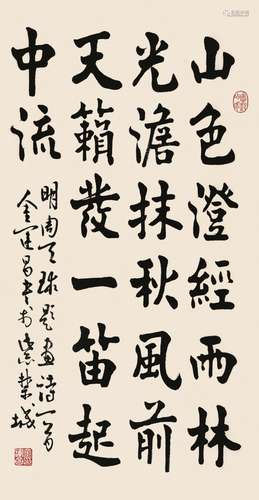 山色澄經雨林
光澹抹秋風前
天籟發一笛起
中流
明周天球題畫詩一首
金運昌書於紫禁城